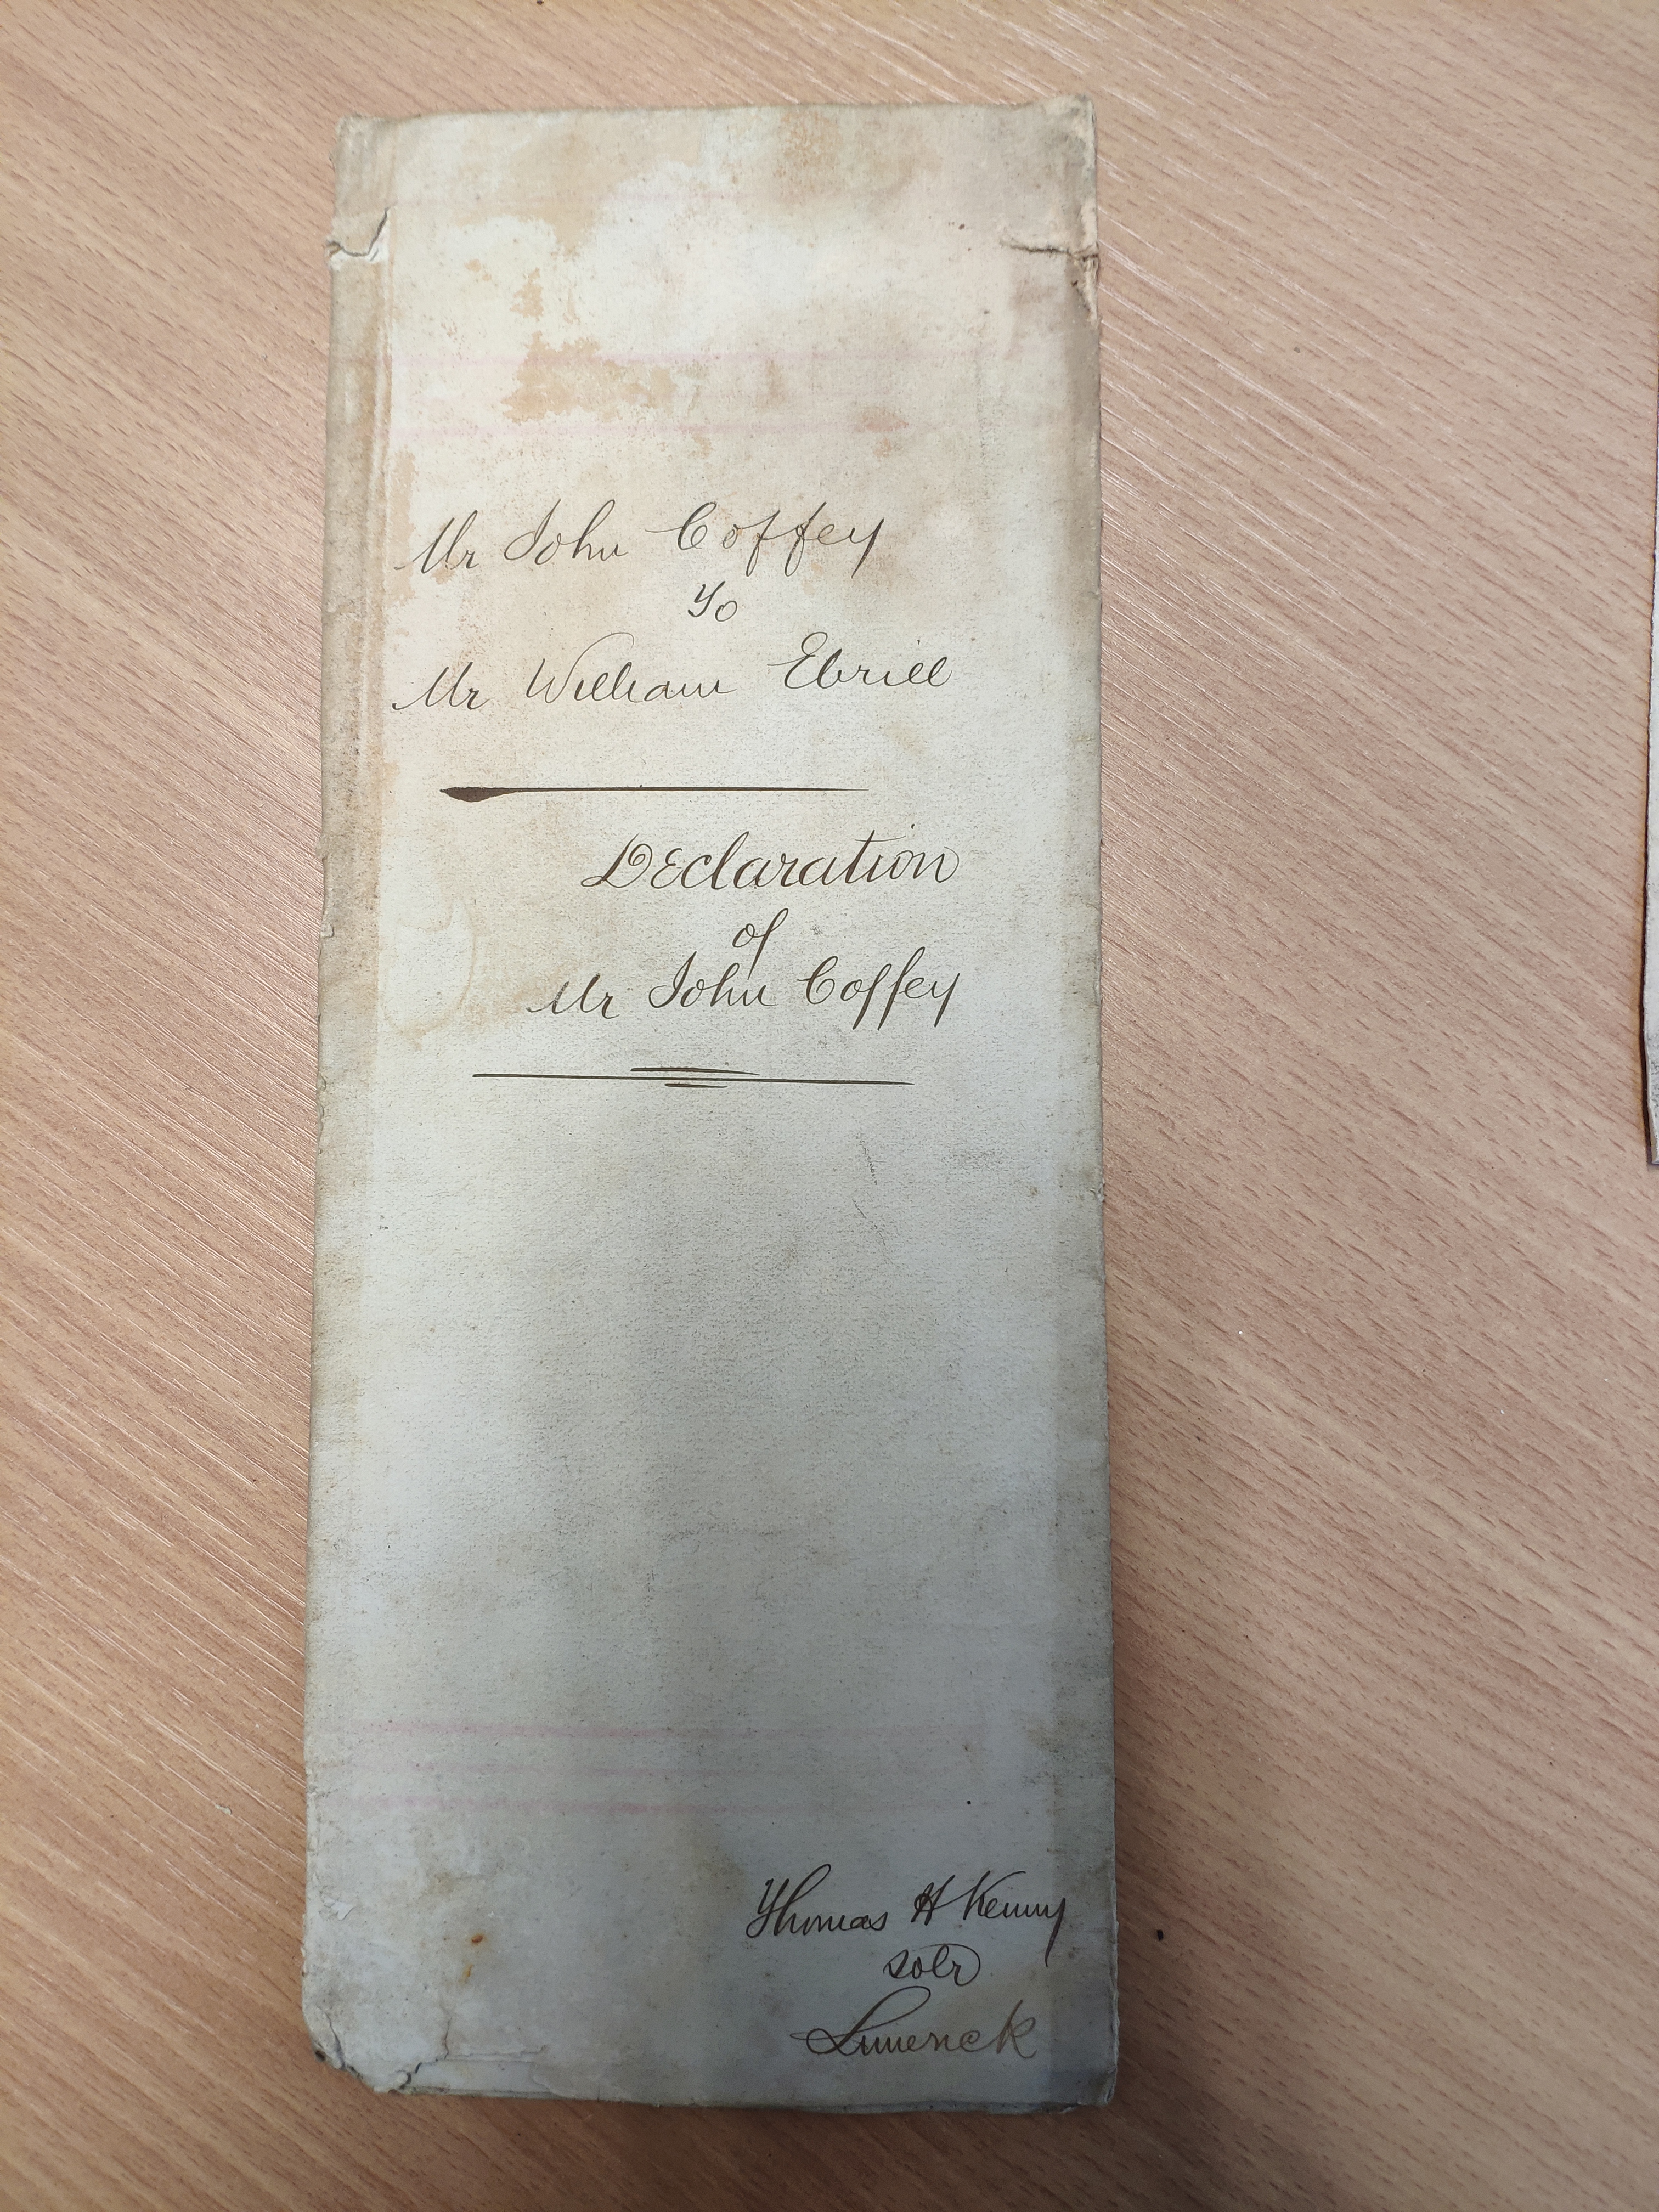 Mr John Coffey
To
Mr William Ebrill
Declaration
of
Mr John Coffey
Thomas H Kenny
Solr
Limerick